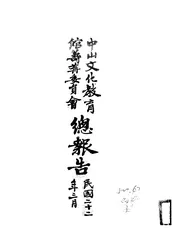 中山文化教育
館籌募委員會
總報告
民國二十二
年三月